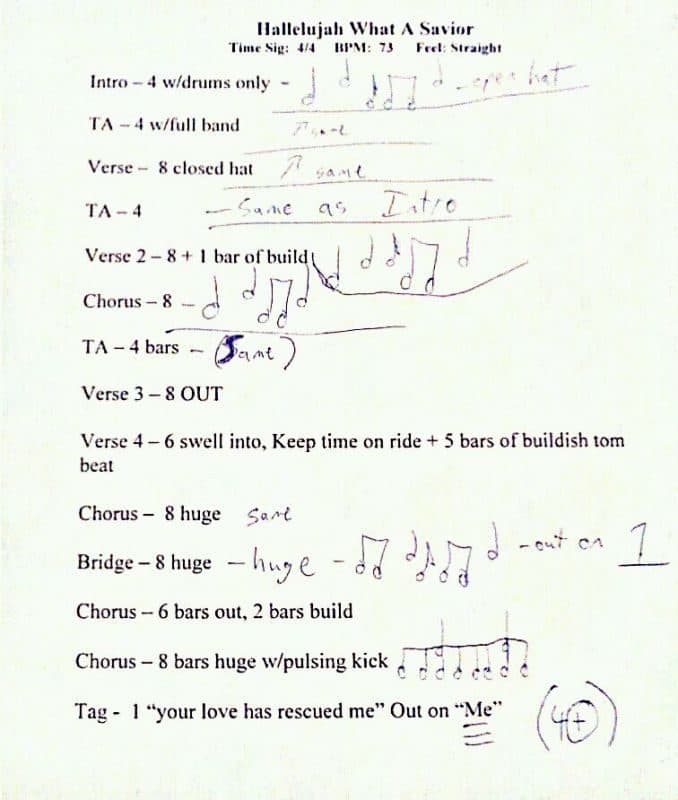 Hallelujah What A Savior
Time Sig: 4/4 BPM: 73 Feel: Straight
Intro – 4 w/drums only - - open hat
TA – 4 w/full band same
Verse – 8 closed hat same
TA – 4 – Same as Intro
Verse 2 – 8 + 1 bar of build
Chorus – 8 –
TA – 4 bars – (Same)
Verse 3 – 8 OUT
Verse 4 – 6 swell into, Keep time on ride + 5 bars of buildish tom
beat
Chorus – 8 huge Same
Bridge – 8 huge – huge - - out on 1
Chorus – 6 bars out, 2 bars build
Chorus – 8 bars huge w/pulsing kick
Tag - 1 “your love has rescued me” Out on “Me” (4+)